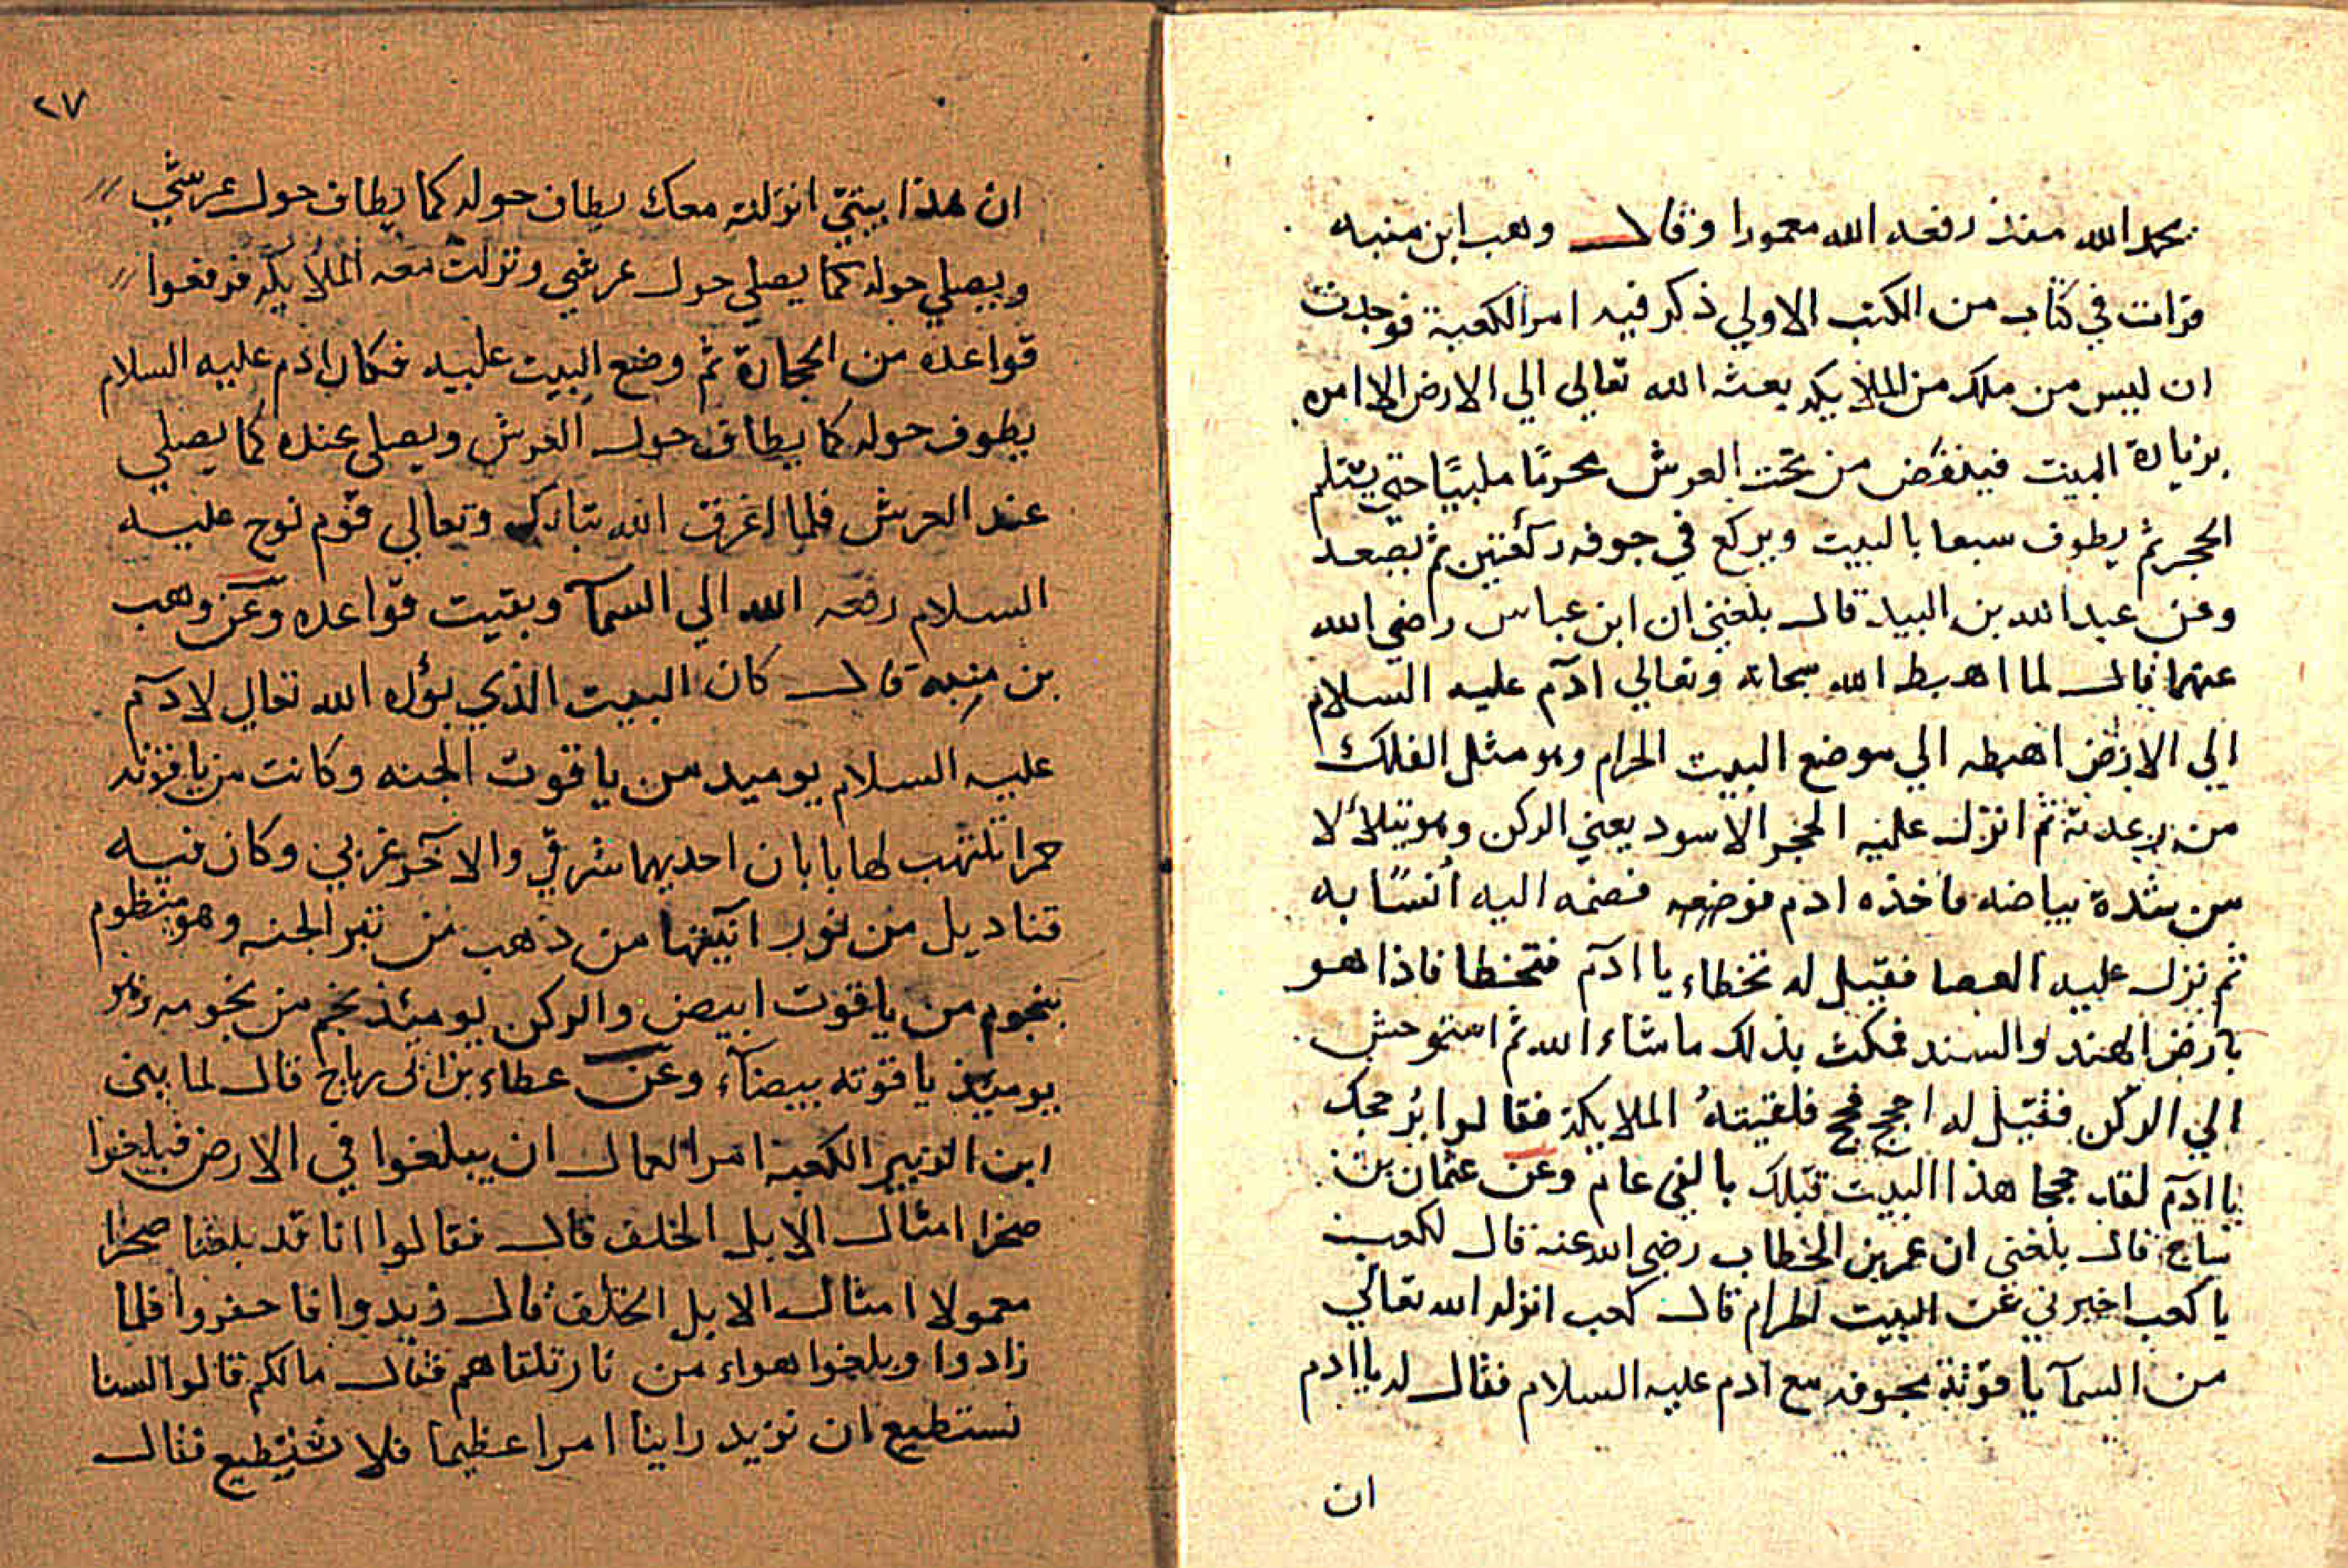 بحمد الله منذ رفعه الله معمورا وقال وهب ابن منبه
قرات في كتاب من الكتب الاولي ذكر فيه امر الكعبة فوجدت
ان ليس من ملك من الملايكه بعثه الله تعالي الي الارض الا امره
بزيارة البيت فينقض من تحت العرش محرمًا ملبيًا حتي يستلم
الحجر ثم يطوف سبعا بالبيت ويركع في جوفه ركعتين ثم يصعد
وعن عبد الله بن لبيد قال بلغني ان ابن عباس رضي الله
عنهما قال لما اهبط الله سبحانه وتعالي ادم عليه السلام
الي الارض اهبطه الي موضع البيت الحرام وهو مثل الفلك
من رعدته ثم انزل عليه الحجر الاسود يعني الركن وهو يتلألا
من شدة بياضه فاخذه ادم فوضعه فضمه اليه أنسًا به
ثم نزل عليه العصا فقيل له تخطاء يا ادم فتخطا فاذا هو
بارض الهند والسند فمكث بذلك ماشاء الله ثم استوحش
الي الركن فقيل له احجج فحج فلقيتهُ الملايكة فقالوا بُر حجك
يا ادم لقد حججنا هذا البيت قبلك بالفي عام وعن عثمان بن
ساج قال بلغني ان عمر بن الخطاب رضي الله عنه قال لكعب
يا كعب اخبرني عن البيت الحرام قال كعب انزله الله تعالي
من السمآ ياقوتة مجوفه مع ادم عليه السلام فقال له يا ادم
ان
٢٧
ان هذا بيتي انزلته معك يطاف حوله كما يطاف حول عرشي
ويصلي حوله كما يصلي حول عرشي ونزلت معه الملايكه فرفعوا
قواعده من الحجارة ثم وضع البيت عليه فكان ادم عليه السلام
يطوف حوله كما يطاف حول العرش ويصلي عنده كما يصلي
عند العرش فلما اغرق الله تبارك وتعالي قوم نوح عليه
السلام رفعه الله الي السمآ وبقيت قواعده وعن وهب
بن منبه قال كان البيت الذي بوّاه الله تعالي لادم
عليه السلام يوميد من ياقوت الجنه وكانت من ياقوته
حمرا تلتهب لها بابان احديهما شرقي والاخر غربي وكان فيه
قناديل من نور انيتها من ذهب من تبر الجنه وهو منظوم
بنجوم من ياقوت ابيض والركن يوميئذ نجم من نجومه وهو
يوميئذ ياقوته بيضآء وعن عطاء بن ابي رباح قال لما بنى
ابن الزبير الكعبة امر العمال ان يبلغوا في الارض فبلغوا
صخرا امثال الابل الخلف قال فقالوا انا قد بلغنا صخرا
معمولا امثال الابل الخلف قال زيدوا فاحفروا فلما
زادوا وبلغوا هواء من نار تلقاهم فقال مالكم قالوا لسنا
نستطيع ان نزيد راينا امرا عظيما فلا نستطيع فقال